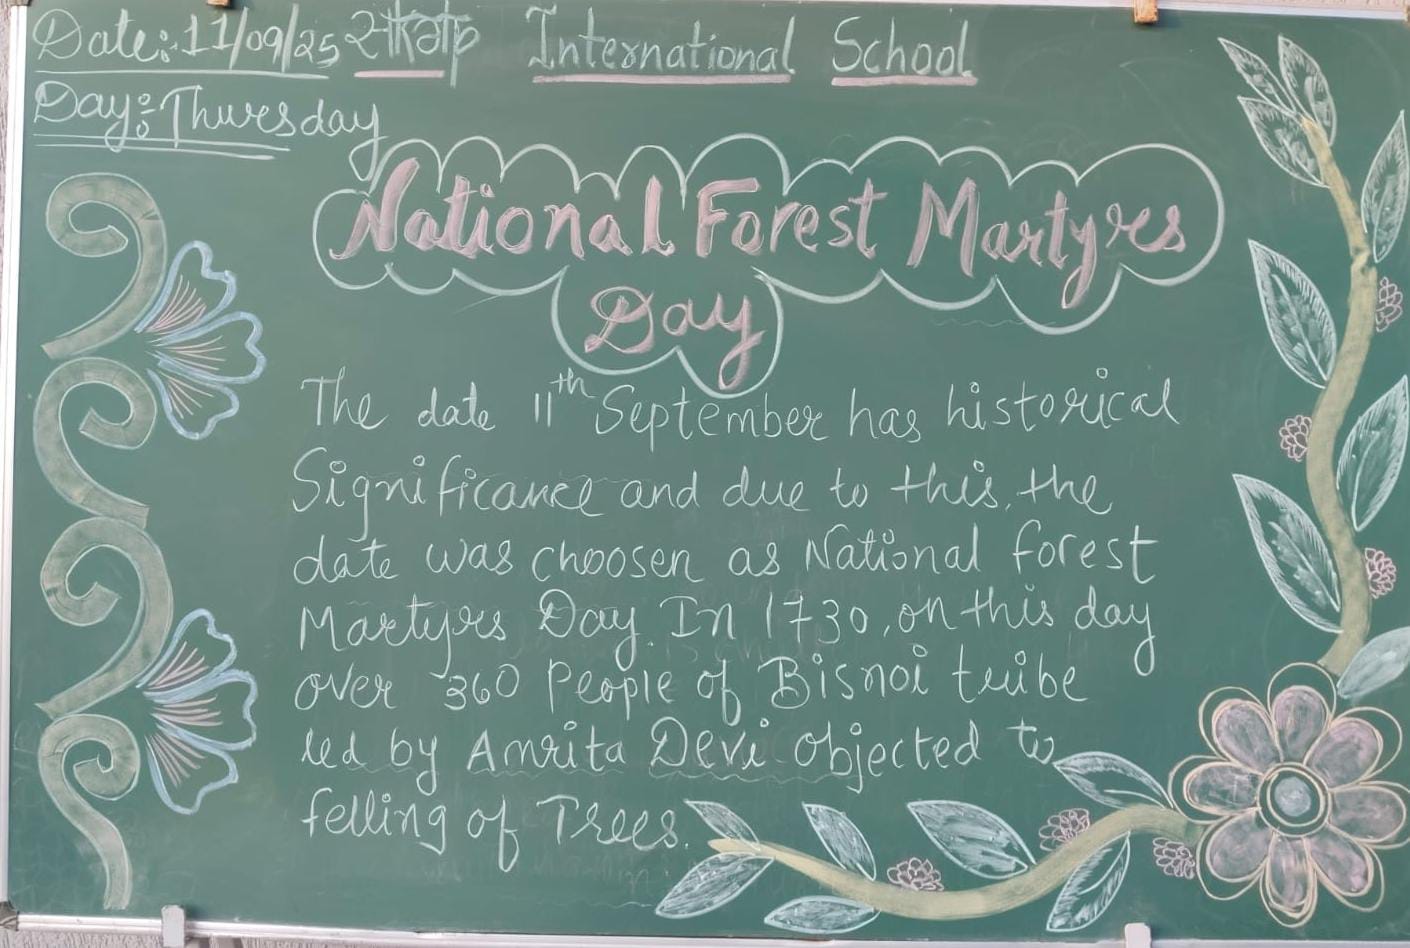 Date:-11/09/25 International School
Day:- Thursday
National Forest Martyrs
Day
The date 11th September has historical
Significance and due to this, the
date was choosen as National forest
Martyrs Day. In 1730, on this day
over 360 People of Bisnoi tribe
led by Amrita Devi objected to
felling of Trees.